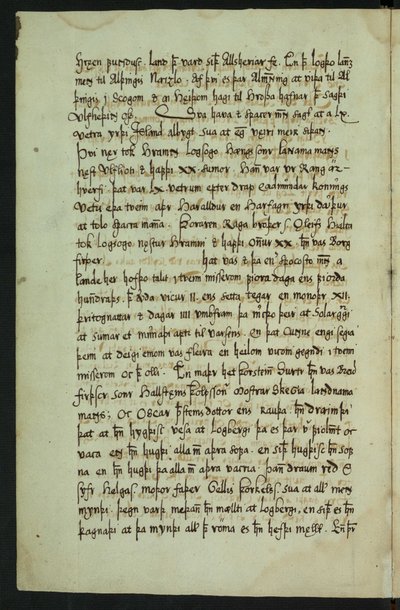 mens til Alþingis Neizlo. Af þvi es þar Almning at viþa til Al
þingis i scogom & a Heiþom hagi til Hrossa hafnar þ sagþi
Ulfheþenn oss. Sva hava & spaker menn sagt at a Lx.
vetra yrþi Island Allbygt sva at eigi veri meir siþan.
Þvi ner tok Hramn Logsogo Hængs sonr Landnama mans
nest Ulflioti & hafþi XX. sumor. Han var ur Rang ar
hverfi. þat var LX vetrum epter drap Eadmundar Konungs
Vetri eþa tveim aþr Haralldur en Harfagri yrþi dauþur
at tolo spacra mana. Þoraren Raga broþer s. Oleifs Hialta
tok Logsogo nestur Hramni & hafþi onur XX. hn vas Borg
firþer. Þat vas & þa en spocosto menn a
lande her hofþo talit i tveim misserom fiora daga ens fiorda
hundraþs. þ verþa vicur II. ens setta tegar en monoþr XII.
þritognattar & dagar IIII umbfram þa mrcþo þeir at solargangi
at sumar et munaþi aptr til varsens. en þat cunne engi segia
þeim at deigi einom vas fleira en heilom vicom gegndi i tveim
misserom oc þ olli. En maþr het Þorsteinn Surtr hn vas Breid
firþscr sonr Hallsteins Þorolfssonar Mostrar Skegia Landnama
mans; oc Oscar Þsteins dottor ens Rauþa. hn dreimþi
þat at hn hygþisc vesa at Logbergi þa es þar v fiolmt oc
vaca ens hn hugþi alla m aþra sofa. en siþ hugþisc hn sof
na en hn hugþi þa alla m aþra vacna. Þan draum red O
syfr Helgas. moþor faþer Gellis Þorkelss. sva at aller menn
mynþi þegn varþ meþan hn mællti at Logbergi, en siþ es hn
þagnaþi at þa mynþi all þ roma es hn hefþi mællt. En þr